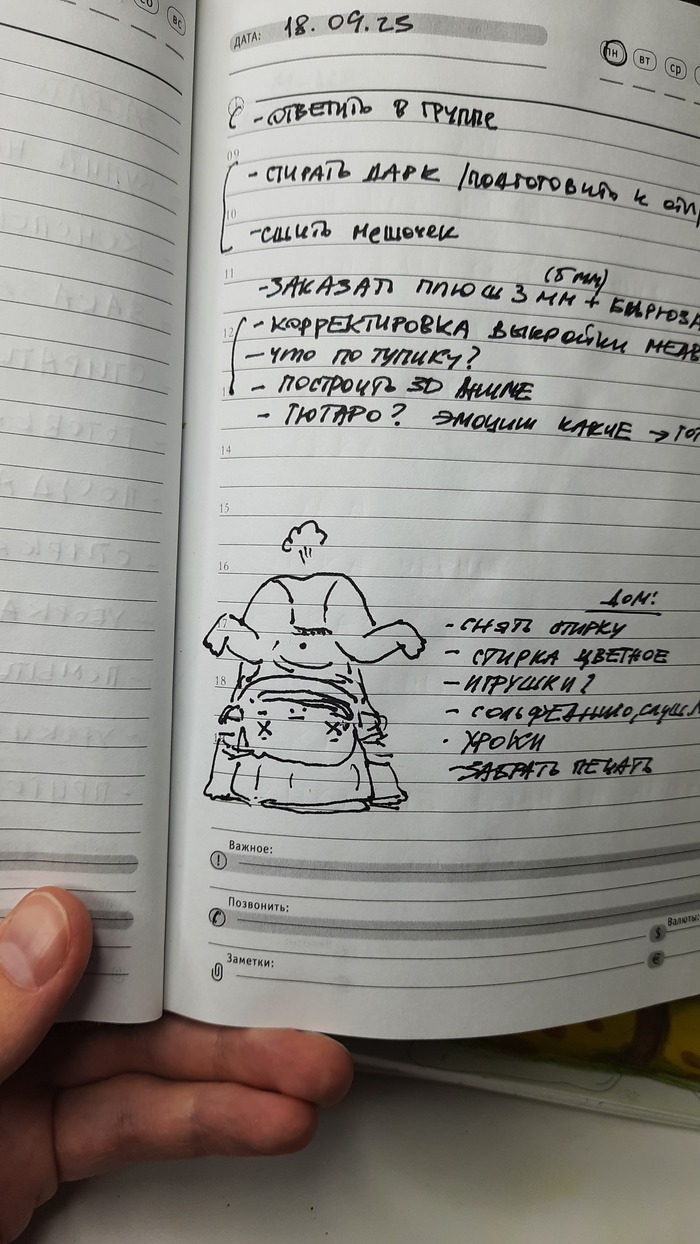 ВС
ДАТА: 18.09.25
ПН ВТ СР
- ОТВЕТИТЬ В ГРУППЕ
09
- СТИРАТЬ ДАРК / ПОДГОТОВИТЬ К ОТП
10
- СШИТЬ МЕШОЧЕК
11
(5 мм)
- ЗАКАЗАТЬ ПЛЮШ 3 ММ + БИРЮЗА
12
- КОРРЕКТИРОВКА ВЫКРОЙКИ МЕДВ
- ЧТО ПО ТУПИКУ?
- ПОСТРОИТЬ 3D АНИМЕ
- ТЮТАРО? ЭМОЦИИ КАКИЕ →
14
15
16
17
18
ДОМ!
- СНЯТЬ СТИРКУ
- СТИРКА ЦВЕТНОЕ
- ИГРУШКИ?
- СОЛЬФЕДЖИО, СЛУШ
- УРОКИ
- ЗАБРАТЬ ПЕЧАТЬ
Важное:
Позвонить:
Валюты:
$
€
Заметки: